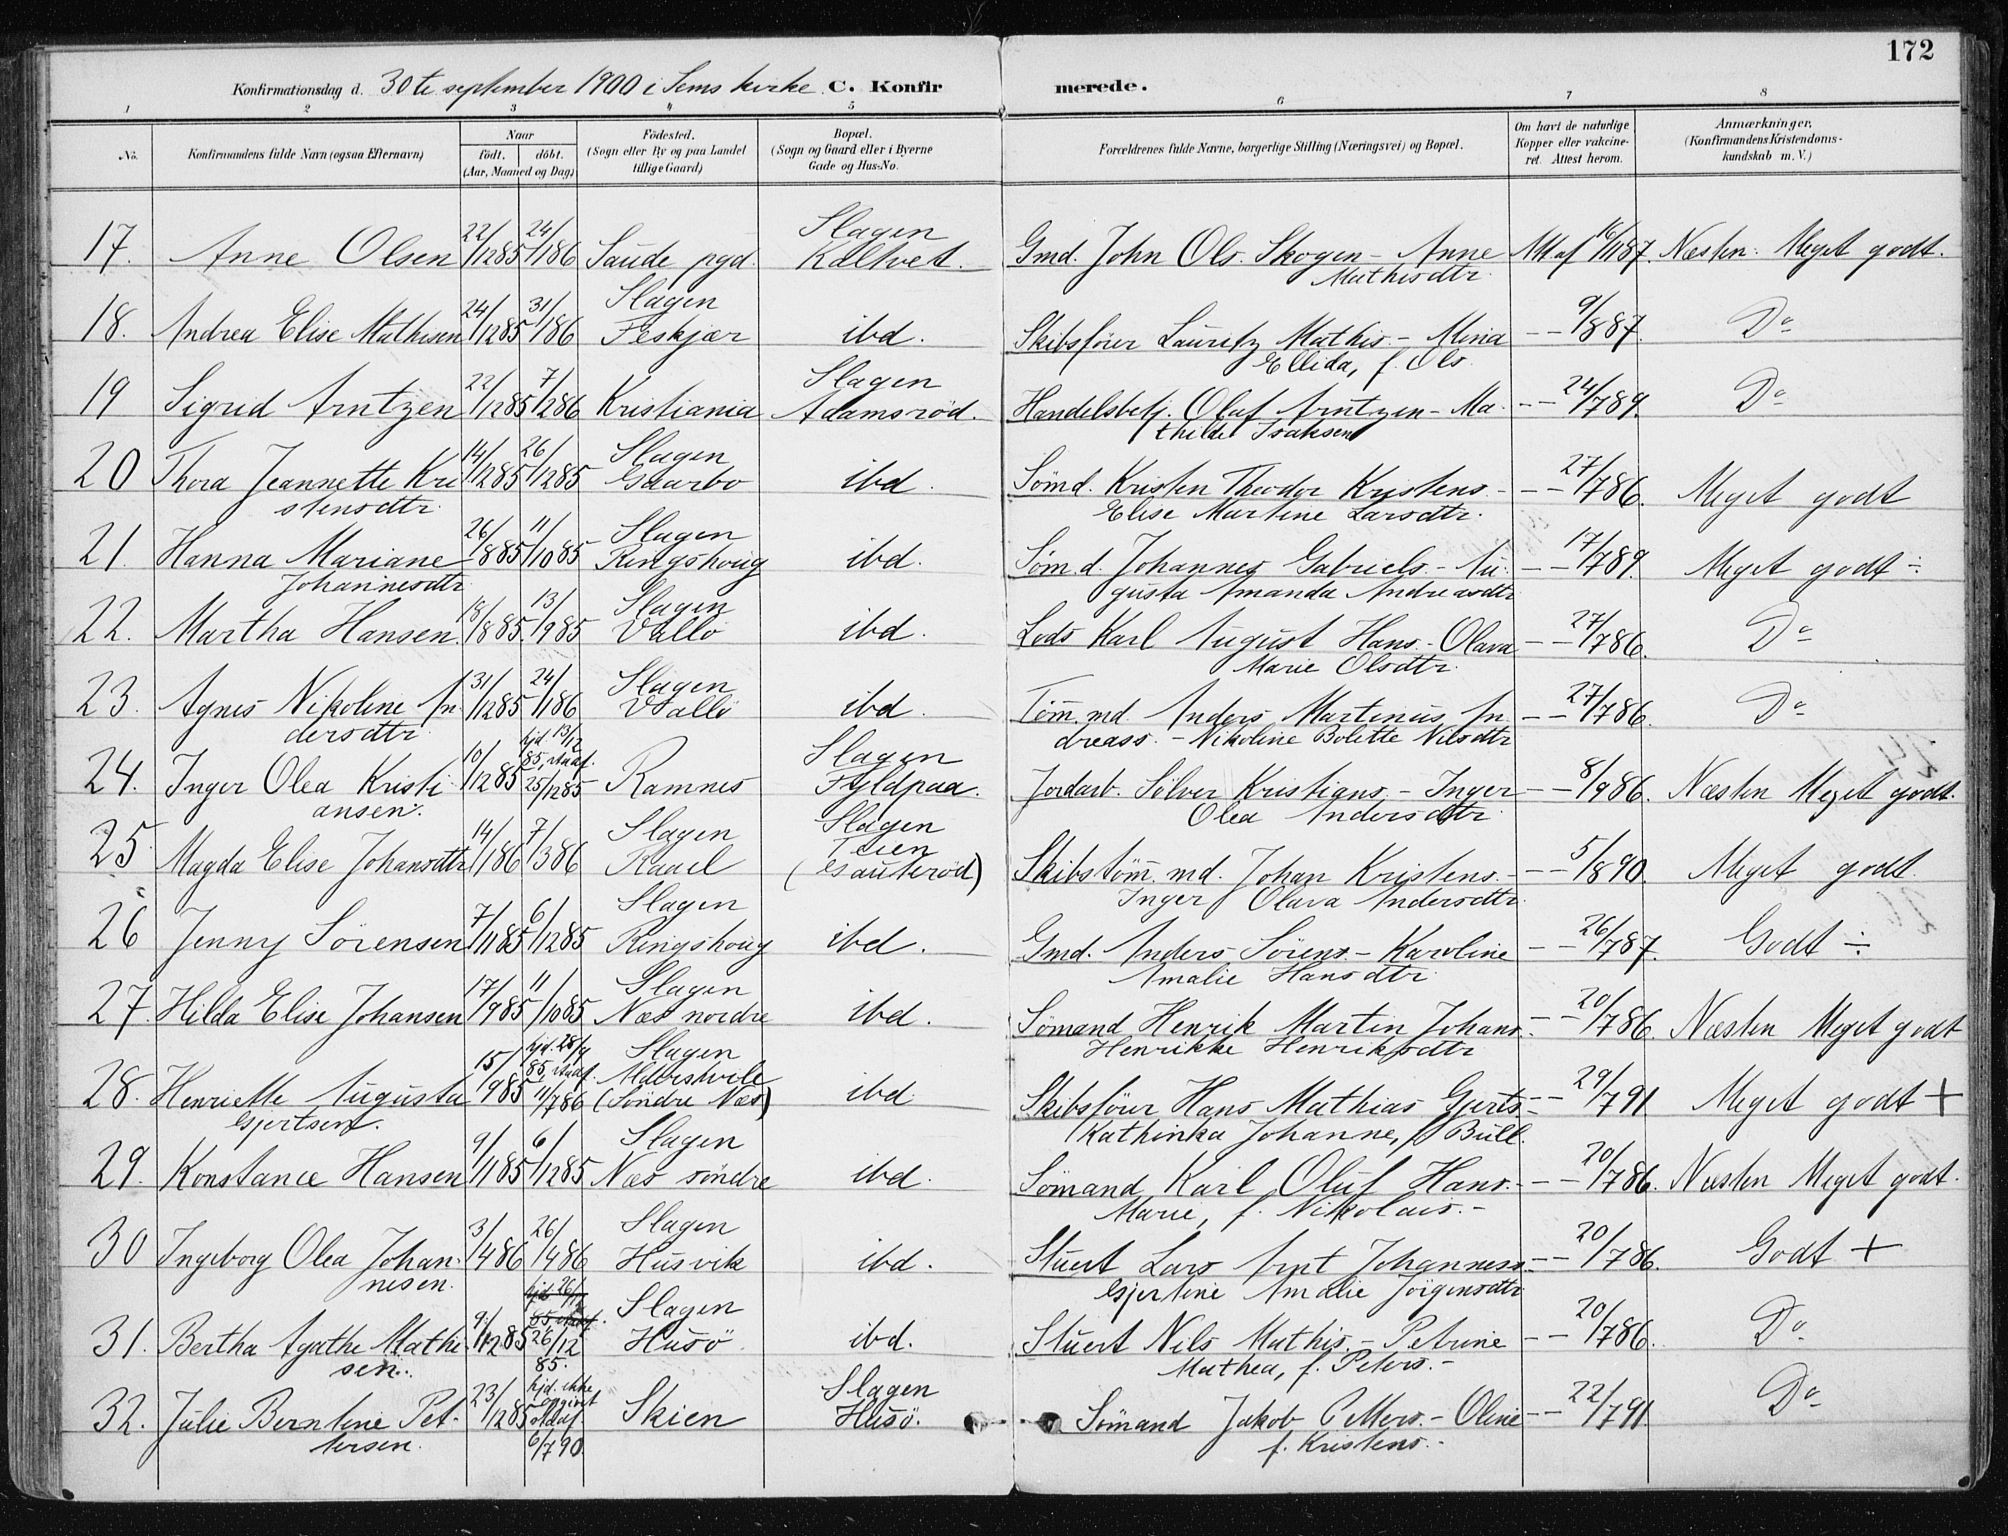 172
Konfirmationsdag d. 30te september 1900 i Sems kirke C. Konfirmerede.
1 2 3 4 5 6 7 8
No. Konfirmandens fulde Navn (ogsaa Efternavn) Naar födt. döbt. (Aar, Maaned og Dag) Födested. (Sogn eller By og paa Landet tillige Gaard) Bopæl. (Sogn og Gaard eller i Byerne Gade og Hus-No. Forældrenes fulde Navne, borgerlige Stilling (Næringsvei) og Bopæl. Om havt de naturlige Kopper eller vakcineret. Attest herom. Anmærkninger. (Konfirmandens Kristendomskundskab m. V.)
17. Anne Olsen 22/1285 24/186 Saude pgd. Slagen Kaltvet. Gmd. John Ols. Skogen - Anne Mathisdtr. Att af 16/1187. Næsten Meget godt.
18. Andrea Elise Mathisen 24/1285 31/186 Slagen Feskjær ibd. Skibsförer Lauritz Mathis. - Mina Ellida, f. Ols. - - 9/887. Do
19 Sigrid Arntzen 22/1285 7/286 Kristiania Slagen Adamsröd. Handelsbetj. Olaf Arntzen - Mathilde Isaksen - - 24/789. Do
20 Thora Jeannette Kristensdtr. 14/1285 26/1285 Slagen Gaarbo ibd. Sömd. Kristen Theodor Kristens. - Elise Martine Larsdtr. - - 27/786. Meget godt
21. Hanna Mariane Johannesdtr. 26/885 11/1085 Slagen Ringshoug ibd. Sömd. Johannes Gabriels. - Augusta Amanda Andreasdtr - - 17/789. Meget godt ÷
22. Martha Hansen. 18/885. 13/985 Slagen Vallö ibd. Lods Karl August Hans. - Olava Marie Olsdtr. - - 27/786. Do
23. Agnes Nikoline Andersdtr. 31/1285 24/186 Slagen Vallö ibd. Tömmd. Anders Martinus Andreass. - Nikoline Bolette Nilsdtr - - 27/786. Do
24. Inger Olea Kristiansen. 10/1285 hjd 13/12 85, stadf. 25/1285 Ramnes Slagen Fyldpaa. Jordarb. Sölver Kristians. - Inger Olea Andersdtr. - - 8/986. Næsten Meget godt.
25. Magda Elise Johansdtr 14/186 7/386 Slagen Raael Slagen Teien (Gauteröd) Skibstömmd. Johan Kristens. - Inger Olava Andersdtr. - - 5/890. Meget godt.
26 Jenny Sörensen 7/1185 6/1285 Slagen Ringshoug ibd. Gmd. Anders Sörens. - Karoline Amalie Hansdtr. - - 26/787. Godt ÷
27. Hilda Elise Johansen 17/985 11/1085 Slagen Næs nordre ibd. Sömand Henrik Martin Johans. Henrikke Henriksdtr - - 20/786. Næsten Meget godt
28. Henriette Augusta Gjertsen. 15/985 hjd. 28/9 85, stadf. 11/786 Slagen (Söndre Næs) ibd. Skibsförer Hans Mathias Gjerts. - Kathinka Johanne, f. Bull. - - 29/791 Meget godt +
29. Konstance Hansen 9/1185 6/1285 Slagen Næs söndre ibd. Sömand Karl Oluf Hans. - Marie, f. Nikolais. - - - 20/786. Næsten Meget godt.
30 Ingeborg Olea Johannesen. 3/486 26/486 Slagen Husvik ibd. Stuert Lars Arnt Johanness. Gjertine Amalie Jörgensdtr - - 20/786. Godt +
31. Bertha Agathe Mathisen. 9/1285 26/12 85. Slagen Husö ibd. Stuert Nils Mathis. - Petrine Mathea, f. Peters. - - - 20/786. Do
32. Julie Berntine Pettersen. 23/1285 hjd. ikke opgivet stadf. 6/790 Skien Slagen Husö. Sömand Jakob Petters. - Oline f. Kristens. - - - 22/791. Do